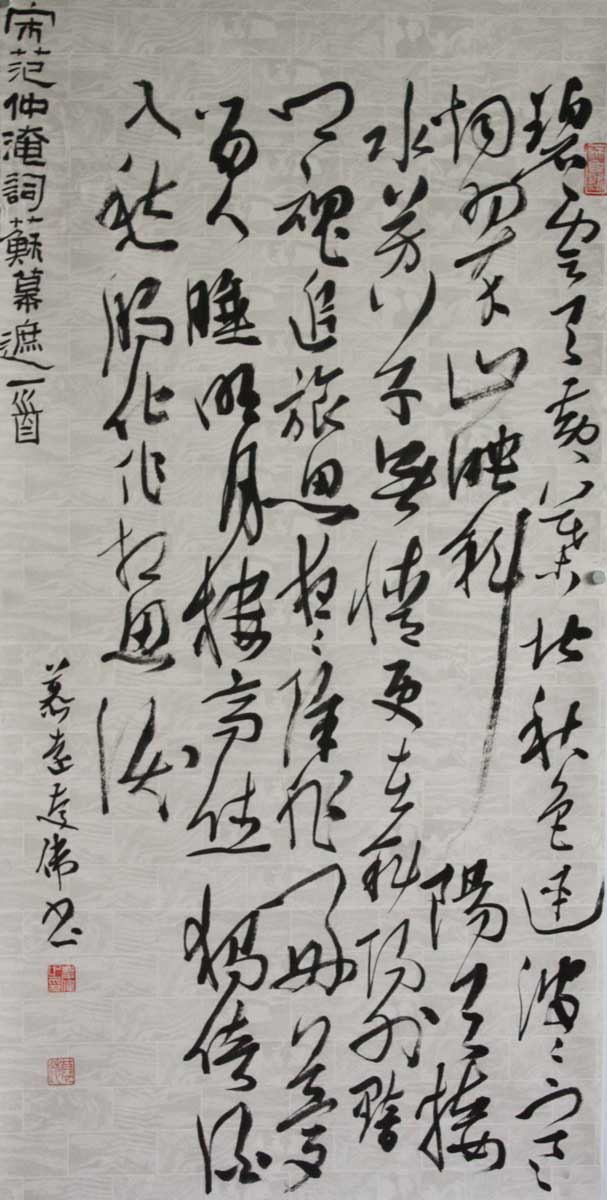 碧雲天黃葉地秋色連波〻上寒
烟翠山映斜陽天接
水芳草無情更在斜陽外黯
鄉魂追旅思夜〻除非好夢
留人睡明月樓高休獨倚酒
入愁腸化作相思淚
宋范仲淹詞蘇幕遮一首
慕偉书